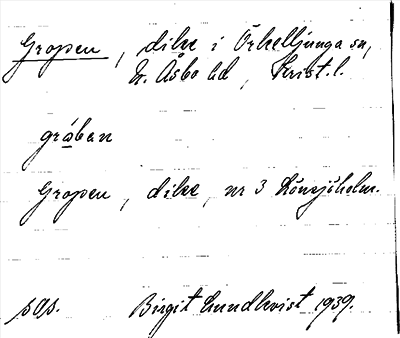 Gropen, dike i Örkelljunga sn,
N. Åsbo hd, Krist. l.
gråban
Gropen, dike, nr 3 Lönsjöholm.
sgs. Birgit Lundkvist 1939.